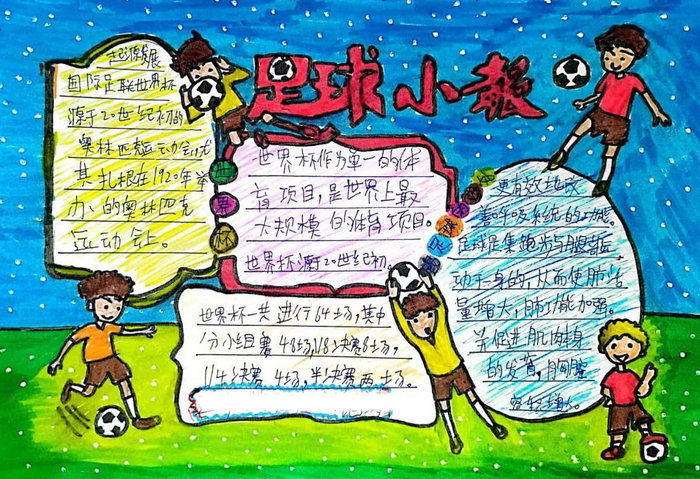 足球小报
起源发展
国际足联世界杯
源于20世纪初的
奥林匹克运动会
其扎根在1920年举
办的奥林匹克
运动会上。
世界杯
世界杯作为单一的体
育项目,是世界上最
大规模的体育项目。
世界杯源于20世纪初。
世界杯一共进行64场,其中
分小组赛48场,1/8决赛8场,
1/4决赛4场,半决赛两场。
更有效地改
善呼吸系统的功能。
足球是集跑步与腿部
功于一身的,从而使肺活
量增大,肺功能加强。
并促进肌肉身
的发育,胸腔